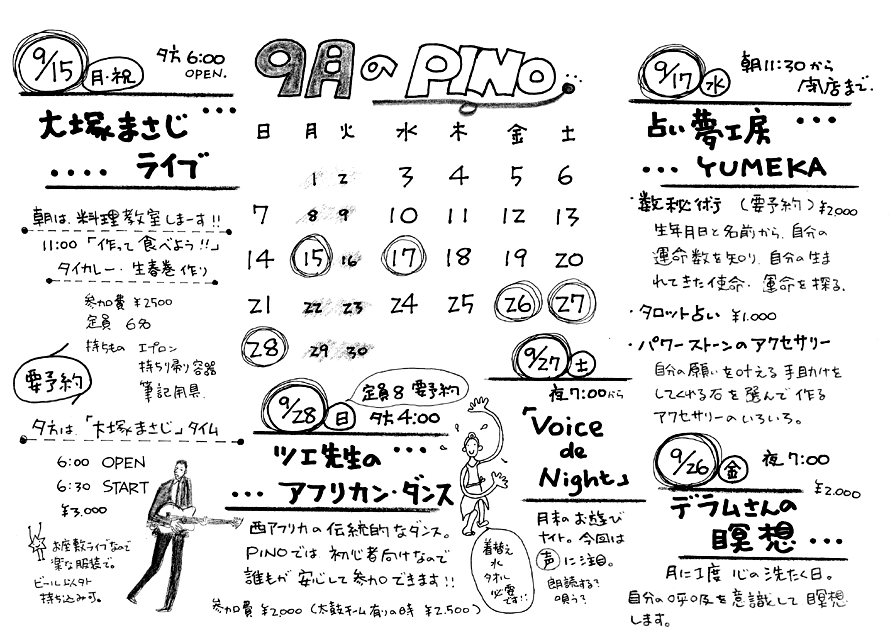 9/15 月・祝 夕方 6:00 OPEN.
大塚まさじ ・・・
・・・・ ライブ
朝は、料理教室しまーす!!
11:00「作って食べよう!!」
タイカレー・生春巻作り
参加費 ¥2500
定員 6名
持ちもの エプロン
持ち帰り容器
筆記用具.
要予約
夕方は、「大塚まさじ」タイム
6:00 OPEN
6:30 START
¥3.000
お座敷ライブなので
楽な服装で。
ビール以外
持ち込み可。
9月の PINO...
日 月 火 水 木 金 土
1 2 3 4 5 6
7 8 9 10 11 12 13
14 15 16 17 18 19 20
21 22 23 24 25 26 27
28 29 30
9/28 日 夕方 4:00
定員8 要予約
ツエ先生の ・・・
・・・ アフリカン・ダンス
西アフリカの伝統的なダンス。
PINOでは 初心者向けなので
誰もが 安心して 参加できます!!
参加費 ¥2,000 (太鼓チーム有りの時 ¥2.500)
着替え
水
タオル
必要
です!!
9/27 土
夜 7:00から
「Voice
de
Night」
月末のお遊び
ナイト。今回は
声に注目。
朗読する?
唄う?
9/17 水 朝11:30から
閉店まで.
占い夢工房 ・・・
・・・ YUMEKA
・数秘術 (要予約) ¥2,000
生年月日と名前から、自分の
運命数を知り、自分の生ま
れてきた使命・運命を探る.
・タロット占い ¥1.000
・パワーストーンのアクセサリー
自分の願いを叶える手助けを
してくれる石を選んで作る
アクセサリーのいろいろ。
9/26 金 夜 7:00
¥2.000
デラムさんの
瞑想 ・・・
月に1度 心の洗たく日。
自分の呼吸を意識して瞑想
します。